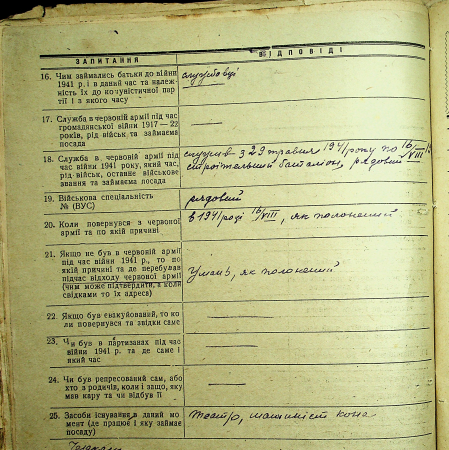 ЗАПИТАННЯ ВІДПОВІДІ
16. Чим займались батьки до війни службовці
1941 р. і в даний час та належ-
ність їх до комуністичної пар-
тії і з якого часу
17. Служба в червоній армії під час —
громадянської війни 1917—22
років, рід військ та займаєма
посада
18. Служба в червоній армії під служив з 29 травня 1941 року по 16/VIII
час війни 1941 року, який час, строітельний баталіон, рядовий
рід військ, останнє військове
звання та займаєма посада
19. Військова спеціальність рядовий
№ (ВУС)
20. Коли повернувся з червоної в 1941 році 16/VIII, як полонений
армії та по якій причині
21. Якщо не був в червоній армії
під час війни 1941 р., то по
якій причині та де перебував Умань, як полонений
підчас відходу червоної армії
(чим може підтвердити, а коли
свідками то їх адреса)
22 Якщо був евакуйований, то ко- —
ли повернувся та звідки саме
23. Чи був в партизанах під час —
війни 1941 р. та де саме і
який час
24. Чи був репресований сам, або —
хто з родичів, коли і защо, яку
мав кару та чи відбув її
25. Засоби існування в даний мо- Театр, машиніст кона
мент (де працює і яку займає
посаду)